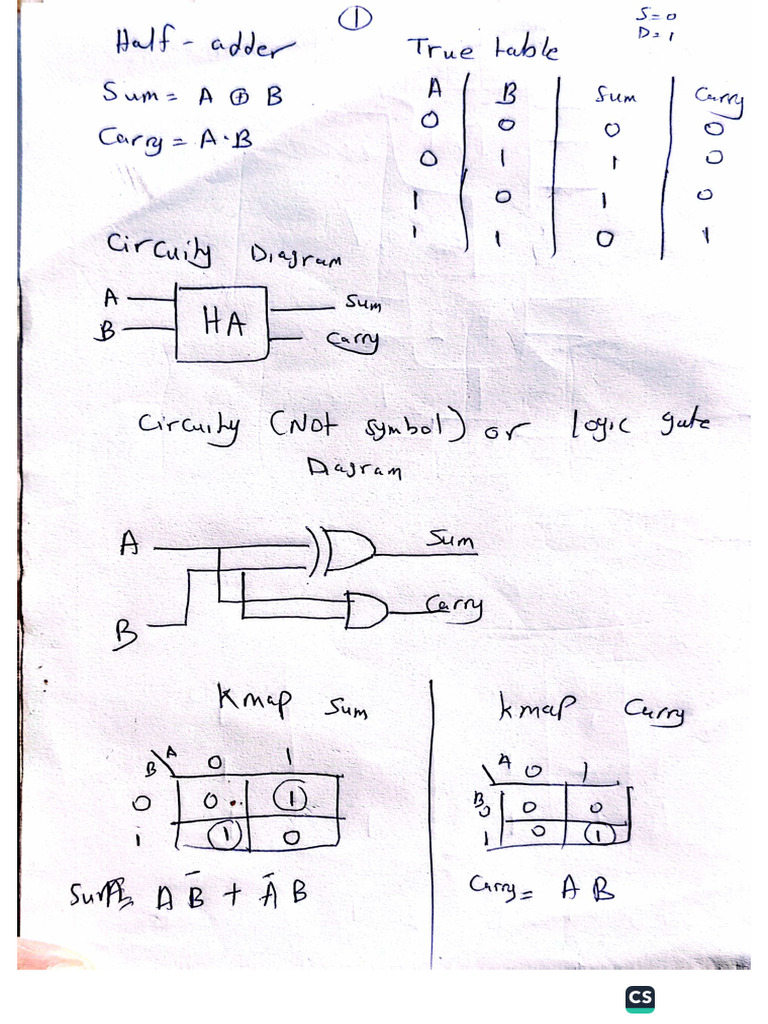 1
S=0
D=1
Half-adder
Sum = A ⊕ B
Carry = A·B
True table
A B Sum Carry
0 0 0 0
0 1 1 0
1 0 1 0
1 1 0 1
Circuity Diagram
A
B
HA
Sum
Carry
Circuity (Not symbol) or logic gate
Diagram
A
B
Sum
Carry
Kmap Sum
B A 0 1
0 0 1
1 1 0
Sum = A B̄ + Ā B
Kmap Carry
A 0 1
B
0 0 0
1 0 1
Carry = A B
CS